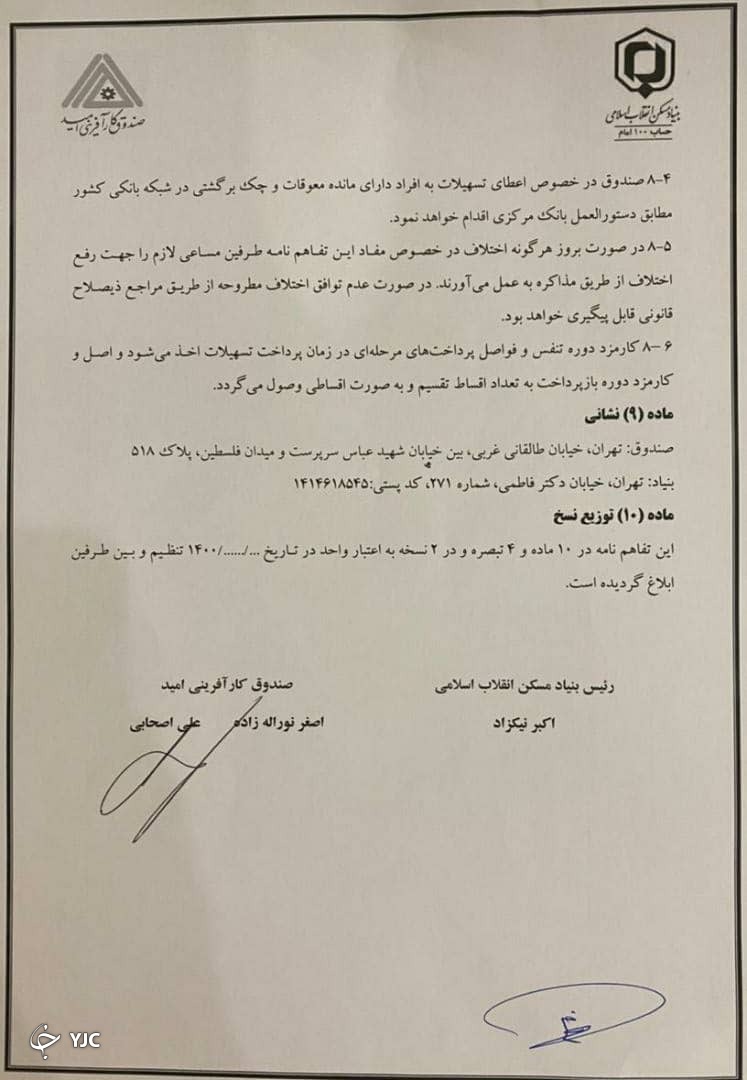 بنیاد مسکن انقلاب اسلامی
حساب ۱۰۰ امام
صندوق کارآفرینی امید
۸-۴ صندوق در خصوص اعطای تسهیلات به افراد دارای مانده معوقات و چک برگشتی در شبکه بانکی کشور
مطابق دستورالعمل بانک مرکزی اقدام خواهد نمود.
۸-۵ در صورت بروز هرگونه اختلاف در خصوص مفاد این تفاهم نامه طرفین مساعی لازم را جهت رفع
اختلاف از طریق مذاکره به عمل می‌آورند. در صورت عدم توافق اختلاف مطروحه از طریق مراجع ذیصلاح
قانونی قابل پیگیری خواهد بود.
۸-۶ کارمزد دوره تنفس و فواصل پرداخت‌های مرحله‌ای در زمان پرداخت تسهیلات اخذ می‌شود و اصل و
کارمزد دوره بازپرداخت به تعداد اقساط تقسیم و به صورت اقساطی وصول می‌گردد.
ماده (۹) نشانی
صندوق: تهران، خیابان طالقانی غربی، بین خیابان شهید عباس سرپرست و میدان فلسطین، پلاک ۵۱۸
بنیاد: تهران، خیابان دکتر فاطمی، شماره ۲۷۱، کد پستی:۱۴۱۴۶۱۸۵۴۵
ماده (۱۰) توزیع نسخ
این تفاهم نامه در ۱۰ ماده و ۴ تبصره و در ۲ نسخه به اعتبار واحد در تاریخ .../....../۱۴۰۰ تنظیم و بین طرفین
ابلاغ گردیده است.
رئیس بنیاد مسکن انقلاب اسلامی
صندوق کارآفرینی امید
اکبر نیکزاد
اصغر نوراله زاده
علی اصحابی
YJC